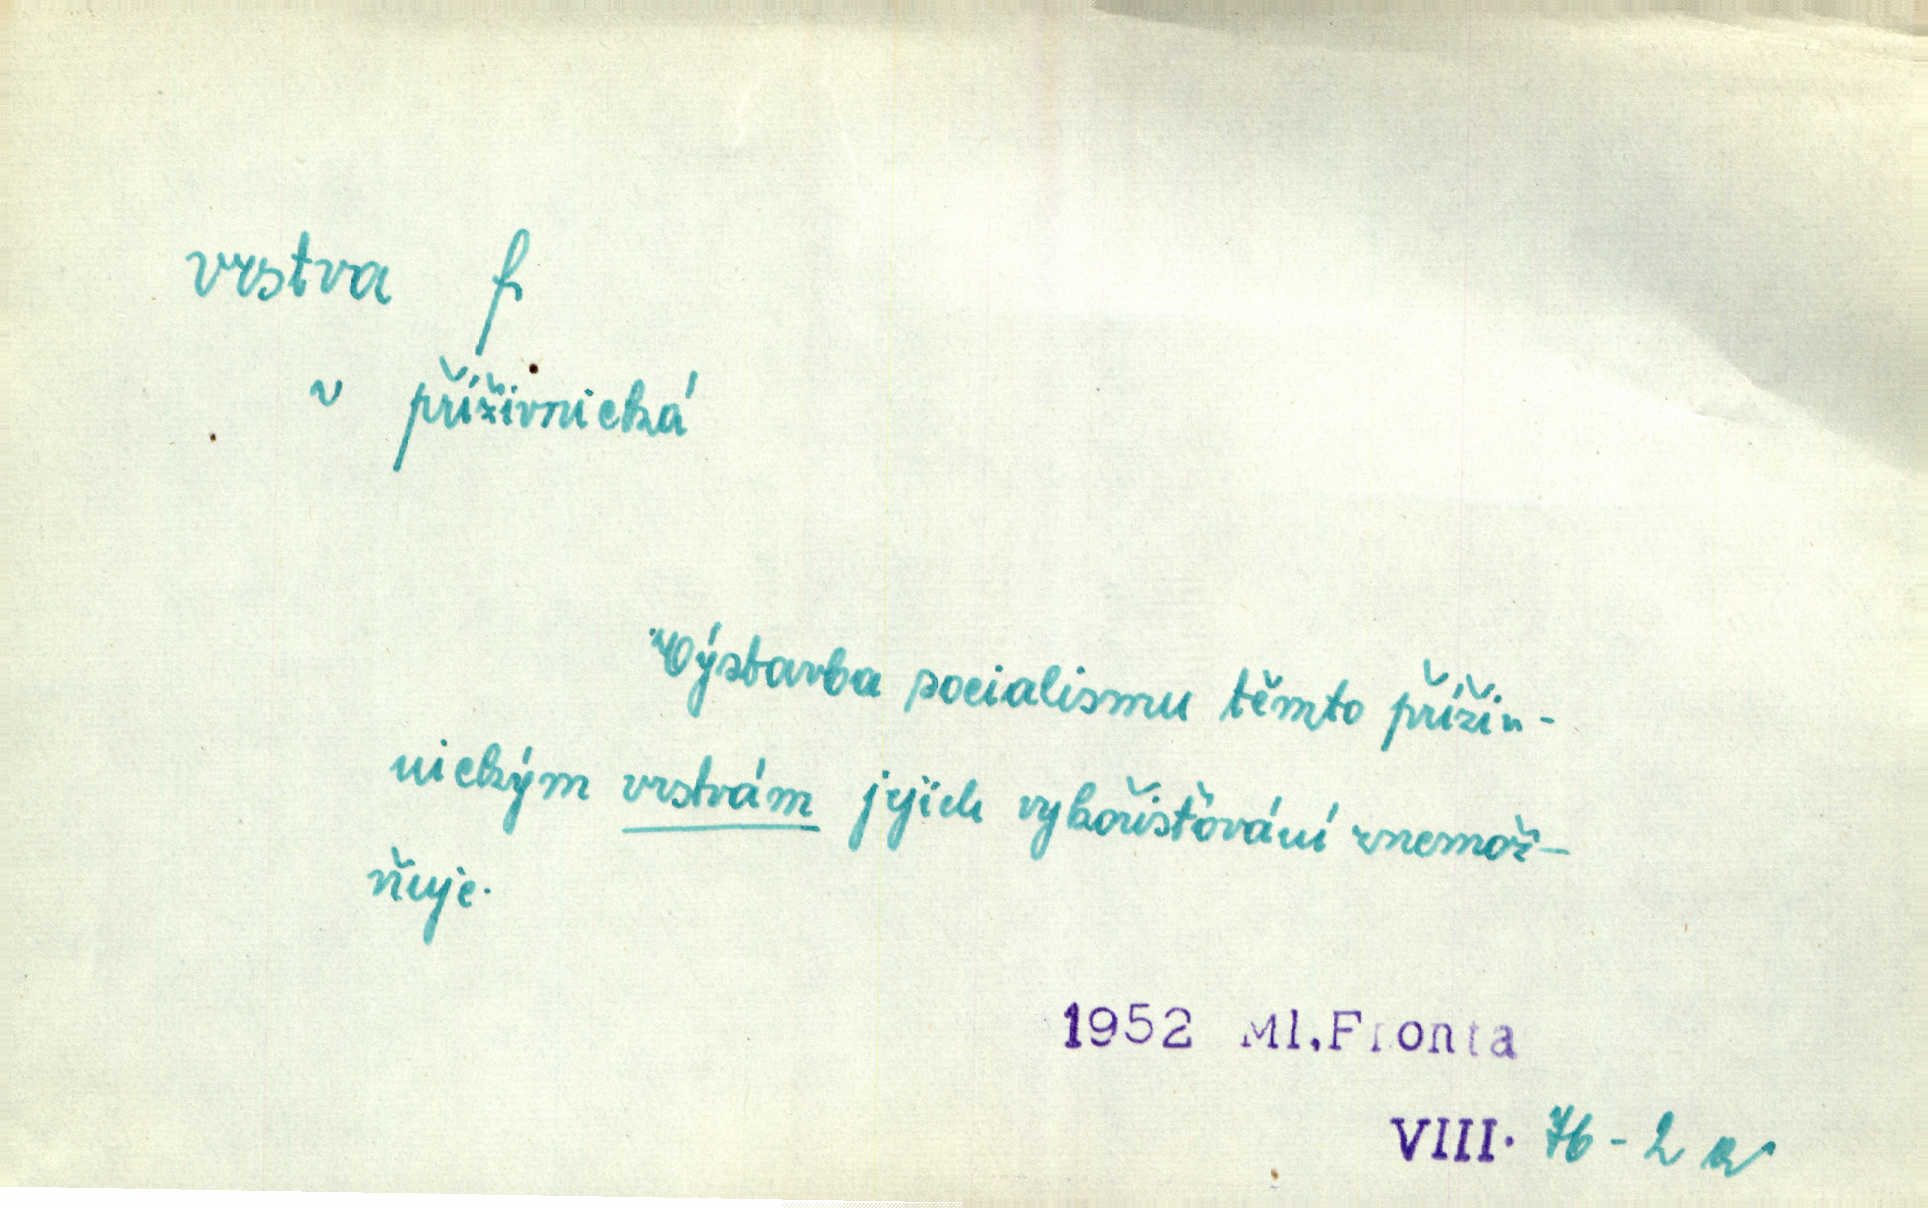 vrstva f
v příživnická
Výstavba socialismu těmto příživ-
nickým vrstvám jejich vykořisťování znemož-
ňuje.
1952 Ml.Fronta
VIII. 76-2